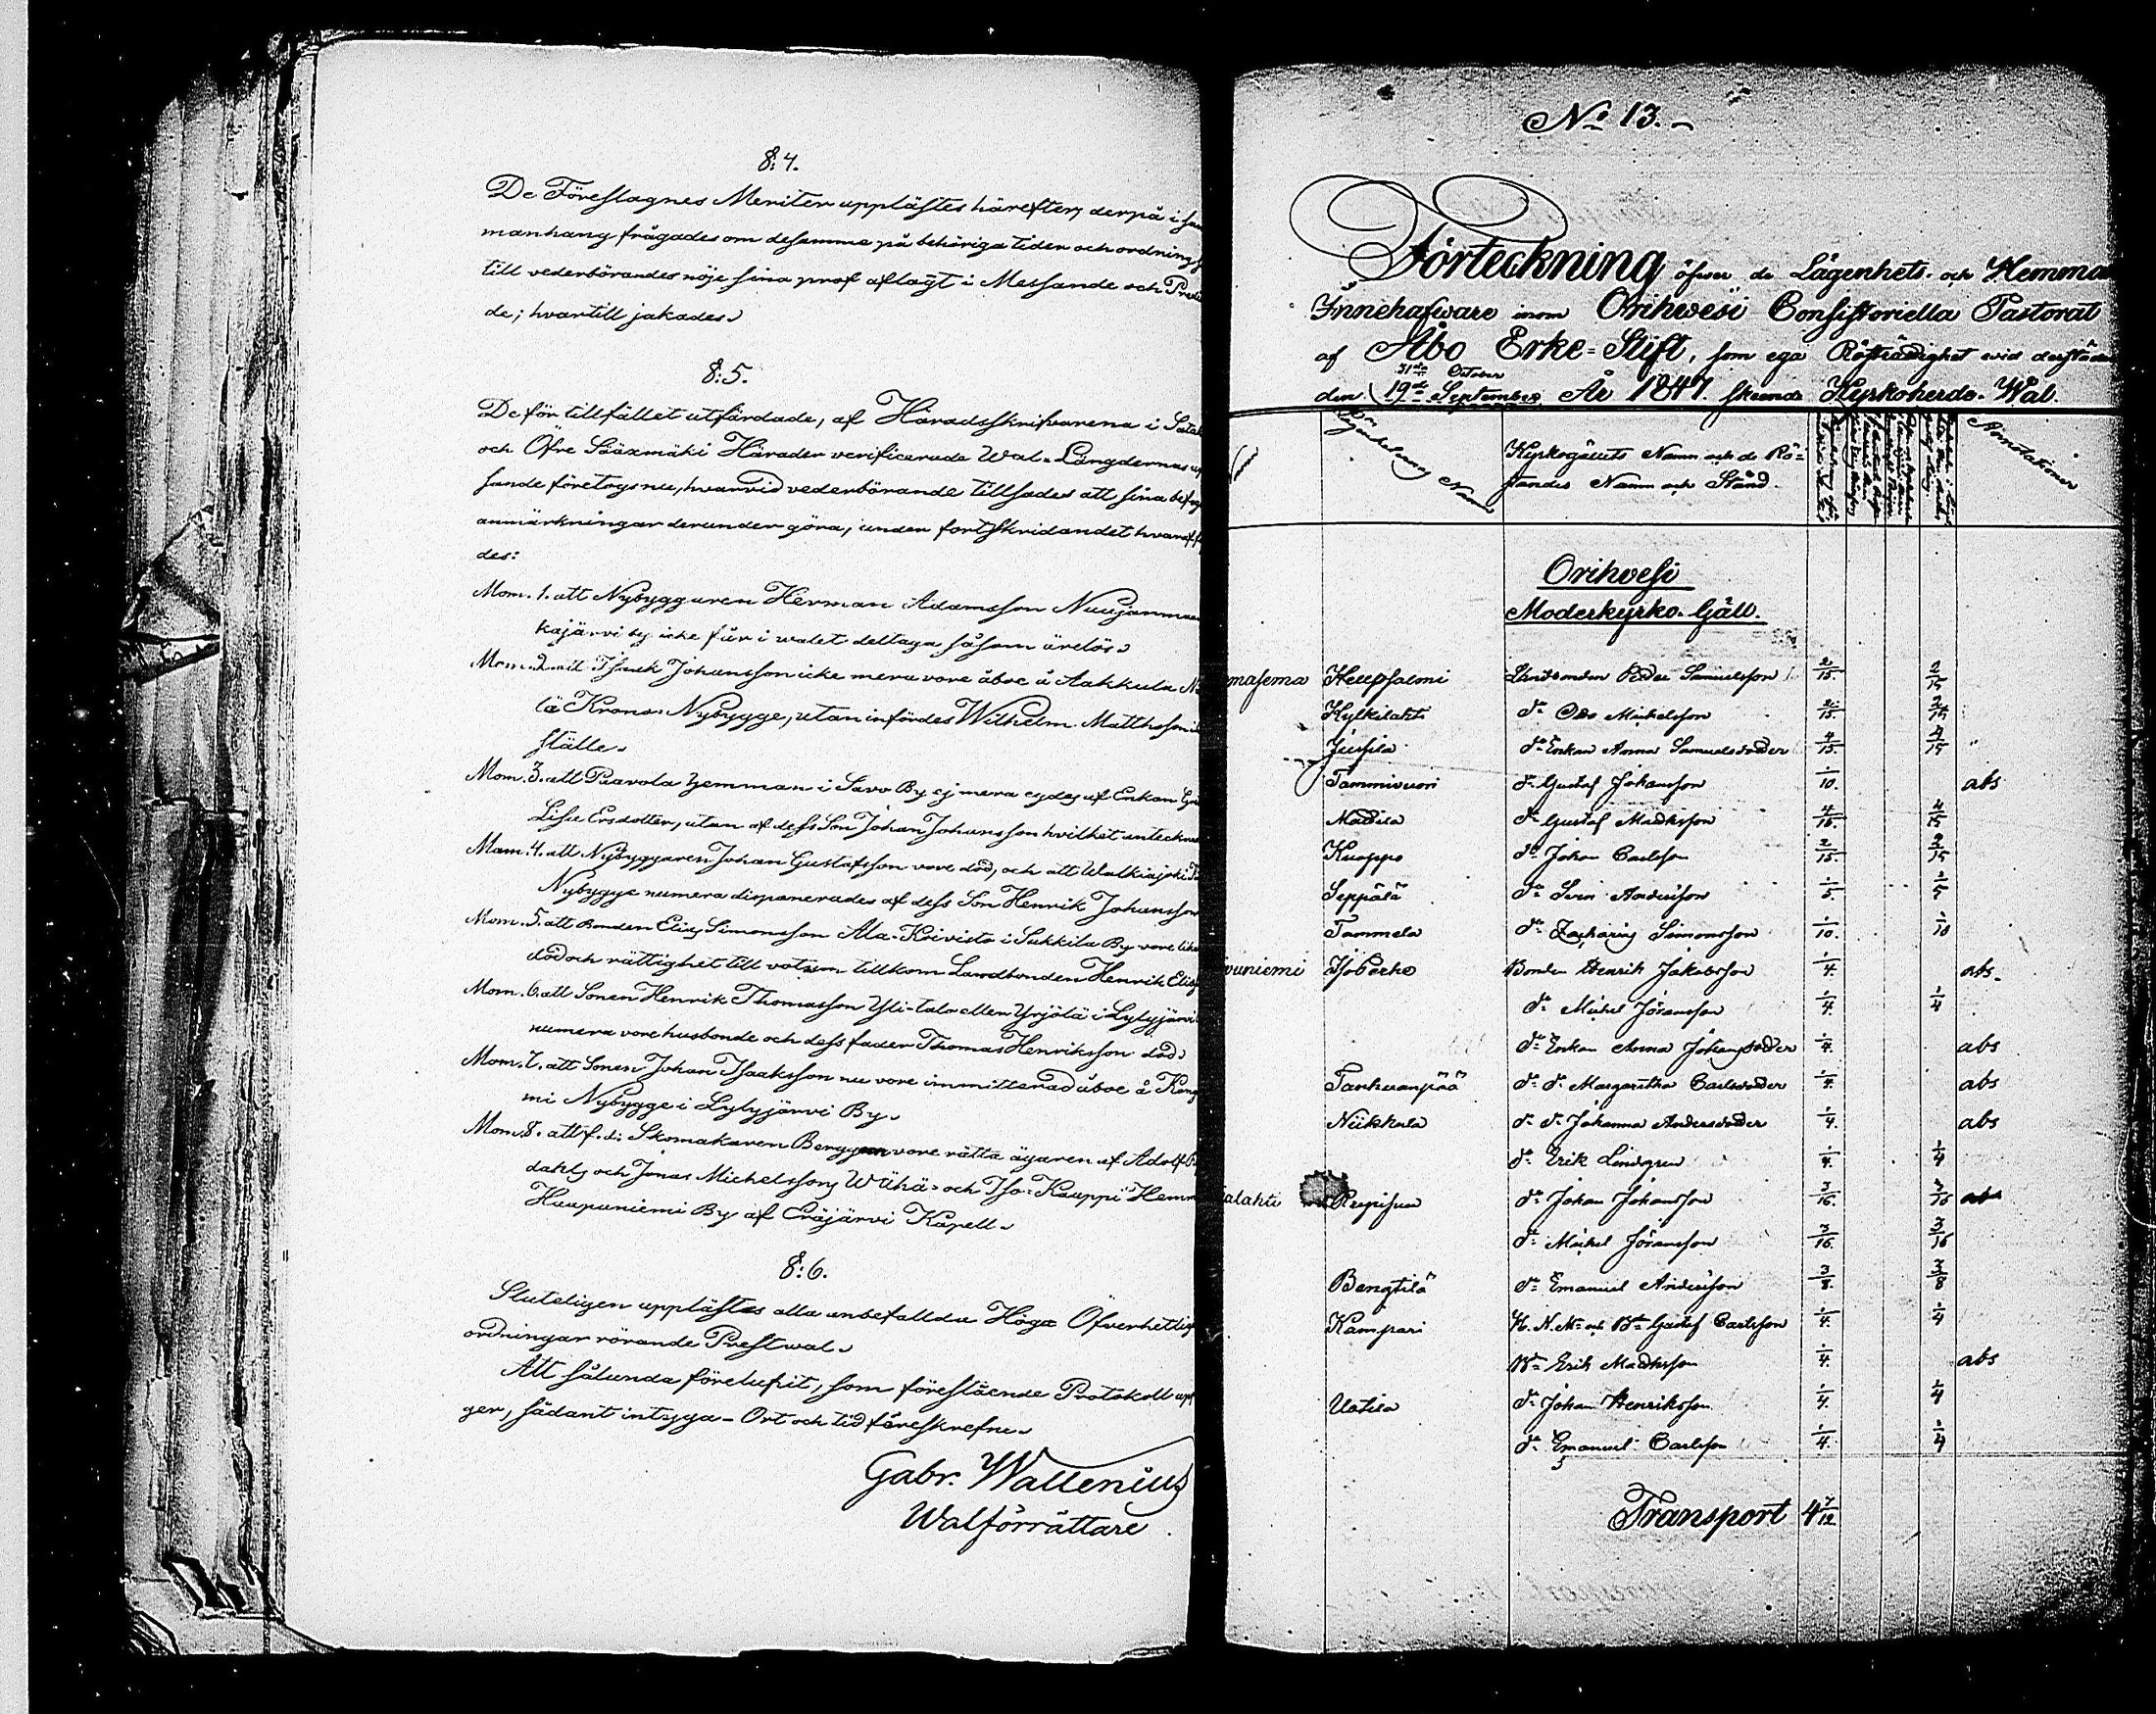 §:4.
De Föreslagnes Meriter upplästes härefter, derpå i
manhang frågades om desamma på behöriga tider och ordning
till vederbörandes nöje sina prof aflagt i Messande och
de; hvartill jakades.
§:5.
De för tillfället utfärdade, af Häradsskrifvarena i
och Öfre Sääxmäki Härader verificerade Wal-Längdernas
sande företogs nu, hvarvid vederbörande tillsades att sina
anmärkningar derunder göra, under fortskridandet
des:
Mom. 1. att Nybyggaren Herman Adamsson
kajärvi by icke får i walet deltaga såsom ärelös.
Mom. 2. att Isaak Johansson icke mera vore åboe å Aakkula
lä Krono-Nybygge, utan infördes Wilhelm Matthsson i
ställe.
Mom. 3. att Paavola hemman i Savo By ej mera egdes af Enkan
Lisa Ersdotter, utan af dess Son Johan Johansson hvilket
Mom. 4. att Nybyggaren Johan Gustafsson vore död, och att Walkiajoki
Nybygge numera disponerades af dess Son Henrik Johansson
Mom. 5. att Bonden Elias Simonsson Ala-Koivisto i Sukkila By vore
död och rättighet till votum tillkom Landbonden Henrik
Mom. 6. att Sonen Henrik Thomasson Yli-talo eller Yrjölä i Lylyjärvi
numera vore husbonde och dess fader Thomas Henriksson död.
Mom. 7. att Sonen Johan Isaaksson nu vore immitterad åboe å
mi Nybygge i Lylyjärvi By.
Mom. 8. att f. d: Skomakaren Berggren vore rätta ägaren af
dahls och Jonas Michelssons Wähä- och Iso-Kauppi
Haapaniemi By af Eräjärvi Kapell.
§:6.
Sluteligen upplästes alla anbefallda Höga
ordningar rörande Prestwal.
Att sålunda förelupit, som föreslående Protokoll
ger, sådant intyga - Ort och tid föreskrefne.
Gabr. Wallenius
Walförrättare
No 13.
Förteckning öfwer de Lägenhets- och
Innehafware inom Orihwesi Consistoriella Pastorat
af Åbo Erke-Stift, som ega Rösträttighet wid
31de October
den 19de September År 1847. skeende Kyrkoherde-Wal.
Kyrkogällets Namn och de Rö-
standes Namn och Stånd.
Annotationer
Orihvesi
Moderkyrko-Gäll.
Landbonden Peder Samuelsson 2/15. 2/15
Kylkilahti do Michelsson 2/15. 2/15
Jussila do Enkan Anna Samuelsdotter 4/15. 4/15
Tammivuori do Gustaf Johansson 1/10. abs
Mattila do Gustaf Mattsson 4/15. 4/15
Kuoppo do Johan Carlsson 2/15. 2/15
Seppälä do Sven Andersson 1/5. 1/5
Tammela do Zacharias Simonsson 1/10. 1/10
Bonden Henrik Jakobsson 1/4. abs.
do Michel Jöransson 1/4. 1/4
do Enkan Anna Johansdotter 1/4. abs
Tanhuanpää do do Margaretha Carlsdotter 1/4. abs
Niikkala do do Johanna Andersdotter 1/4. abs
do Erik Lindgren 1/4. 1/4
do Johan Johansson 3/16. 3/16 abs
do Michel Jöransson 3/16. 3/16
Bengtilä do Emanuel Andersson 3/8. 3/8
Kampari Gustaf Carlsson 1/4. 1/4
Erik Mattsson 1/4. abs
Uotila do Johan Henriksson 1/4. 1/4
do Emanuel Carlsson 1/4. 1/4
Transport 4 7/12